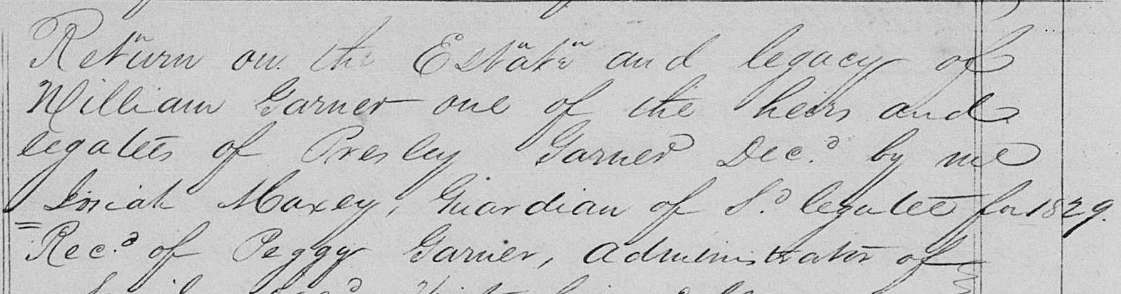 Return on the Estate and legacy of
William Garner one of the heirs and
legatees of Presley Garner Decd. by me
Josiah Maxey, Guardian of Sd. legatee for 1829.
Recd. of Peggy Garner, administrator of